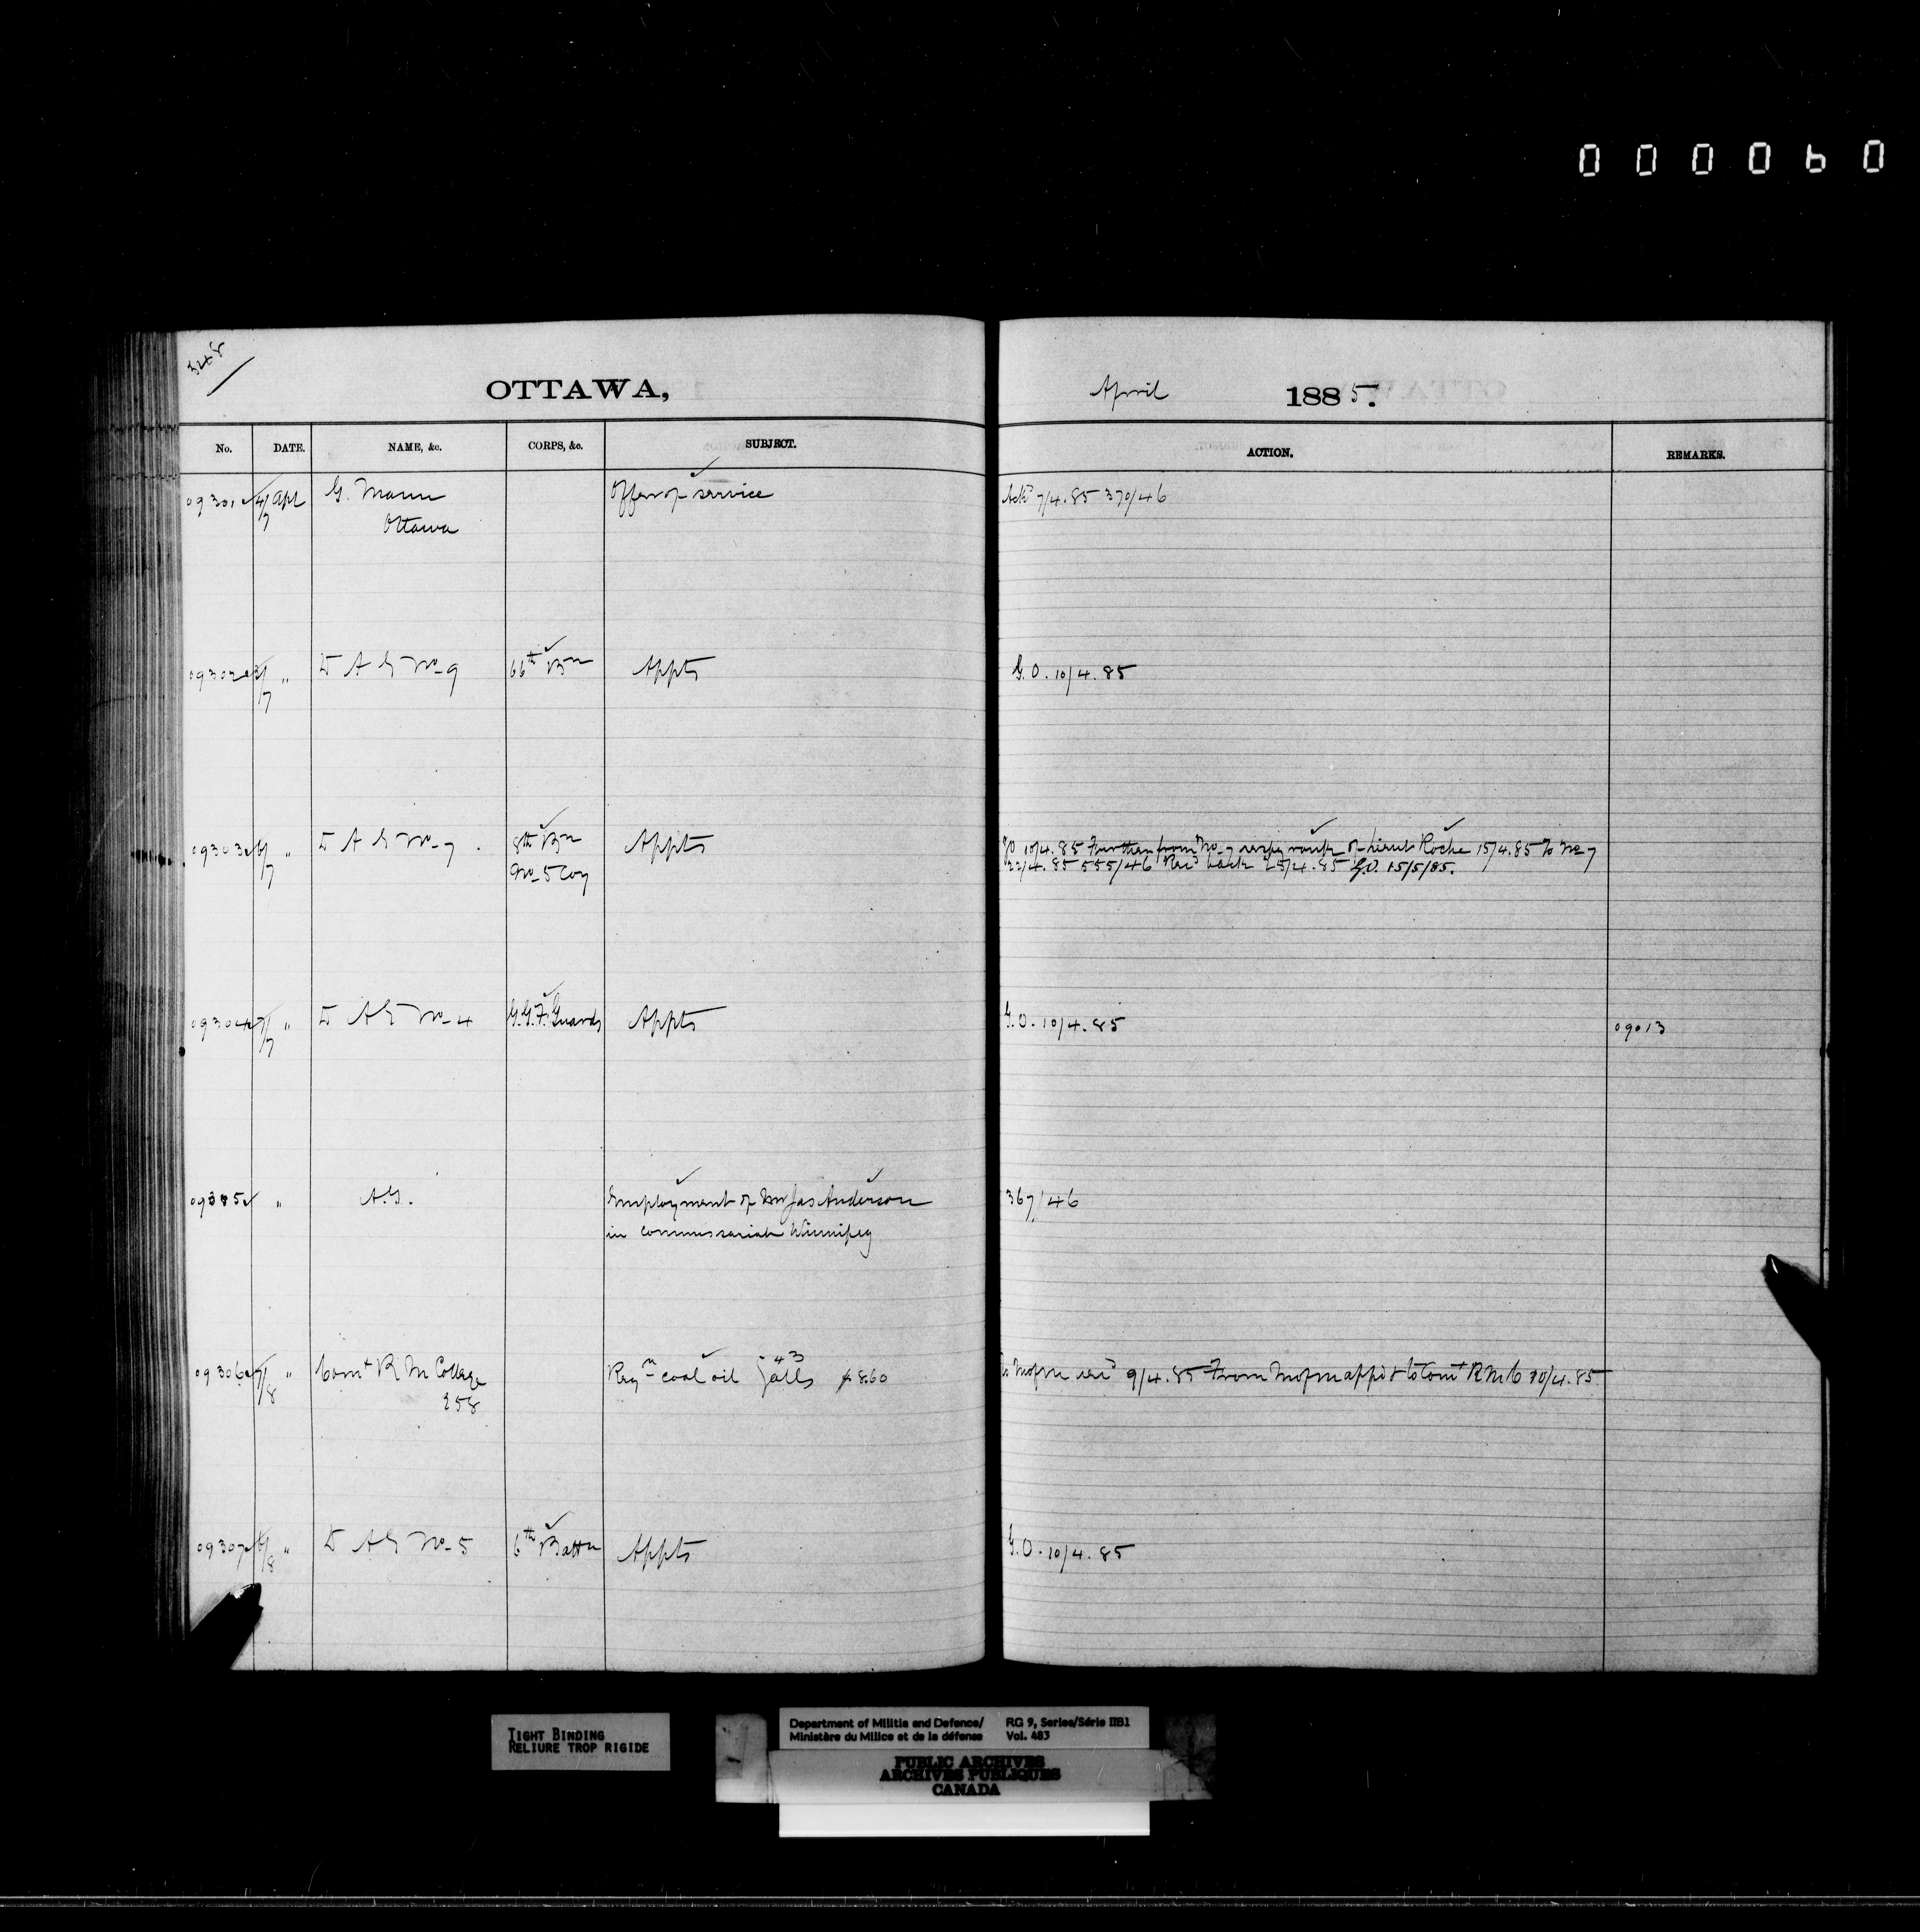 000060
348
OTTAWA, April 1885.
No. DATE. NAME, &c. CORPS, &c. SUBJECT. ACTION. REMARKS.
09301 4/7 Apl G. Mann Offer of service Ackd 7/4.85 370/46
Ottawa
09302 /7 " D A G No 9 66th Bn Appts G.O. 10/4.85
09303 6/7 " D A G No 7. 8th Bn Appts GO 10/4.85 Further from No 7 respg rank of Lieut Roche 15/4.85 To No 7
No 5 Coy 22/4.85 555/46 Recd back 25/4.85 G.O. 15/5/85.
09304 7/7 " D A G No 4 G.G.F. Guards Appts G.O. 10/4.85 09013
09305 " A.G. Employment of Mr Jas Anderson 367/46
in commissariat Winnipeg
09306 7/8 " Comt R M College Reqn coal oil 43 galls $8.60 To M of M recd 9/4.85 From M of M appd & to Comt R M C 10/4.85.
258
09307 6/8 " D A G No 5 6th Battn Appts G.O. 10/4.85
TIGHT BINDING
RELIURE TROP RIGIDE
Department of Militia and Defence/ RG 9, Series/Série IIB1
Ministère du Milice et de la défense Vol. 483
PUBLIC ARCHIVES
ARCHIVES PUBLIQUES
CANADA